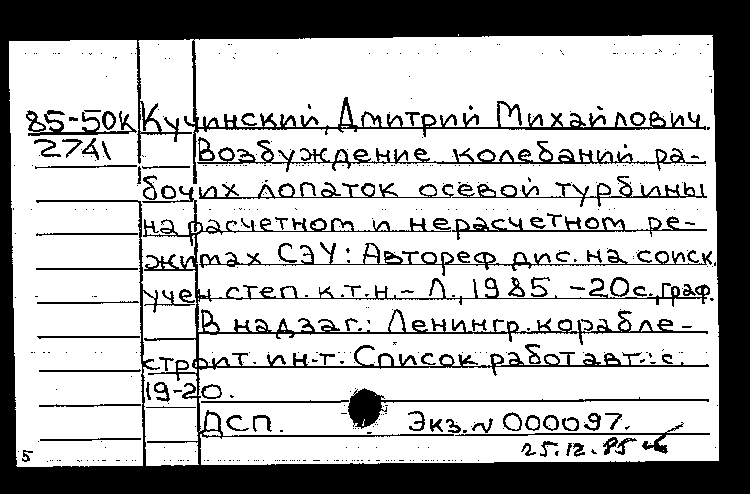 85-50К Кучинский, Дмитрий Михайлович
2741 Возбуждение колебаний ра-
бочих лопаток осевой турбины
на расчетном и нерасчетном ре-
жимах СЭУ: Автореф. дис. на соиск.
учен. степ. к.т.н. - Л., 1985. - 20с., граф.
В надзаг.: Ленингр. корабле-
строит. ин-т. Список работ авт.: с.
19-20.
ДСП. Экз. N 000097.
25.12.85
5